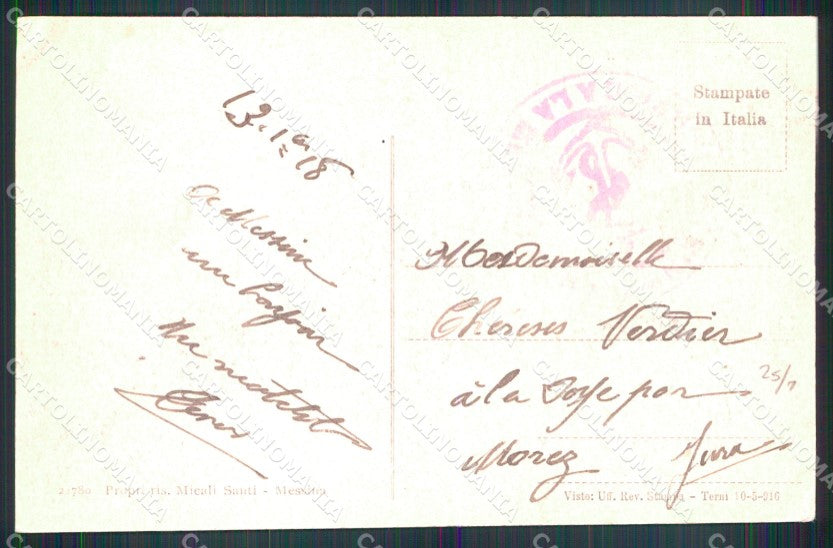 13. 1er 18
a Messine
un bonjour
Stampate
in Italia
Mesdemoiselle
Thereses Verdier
à la Doye par
Morez Jura
25/1
21780 Propr. ris. Micali Santi - Messina
Visto: Uff. Rev. Stampa - Terni 10-5-916
CARTOLINOMANIA